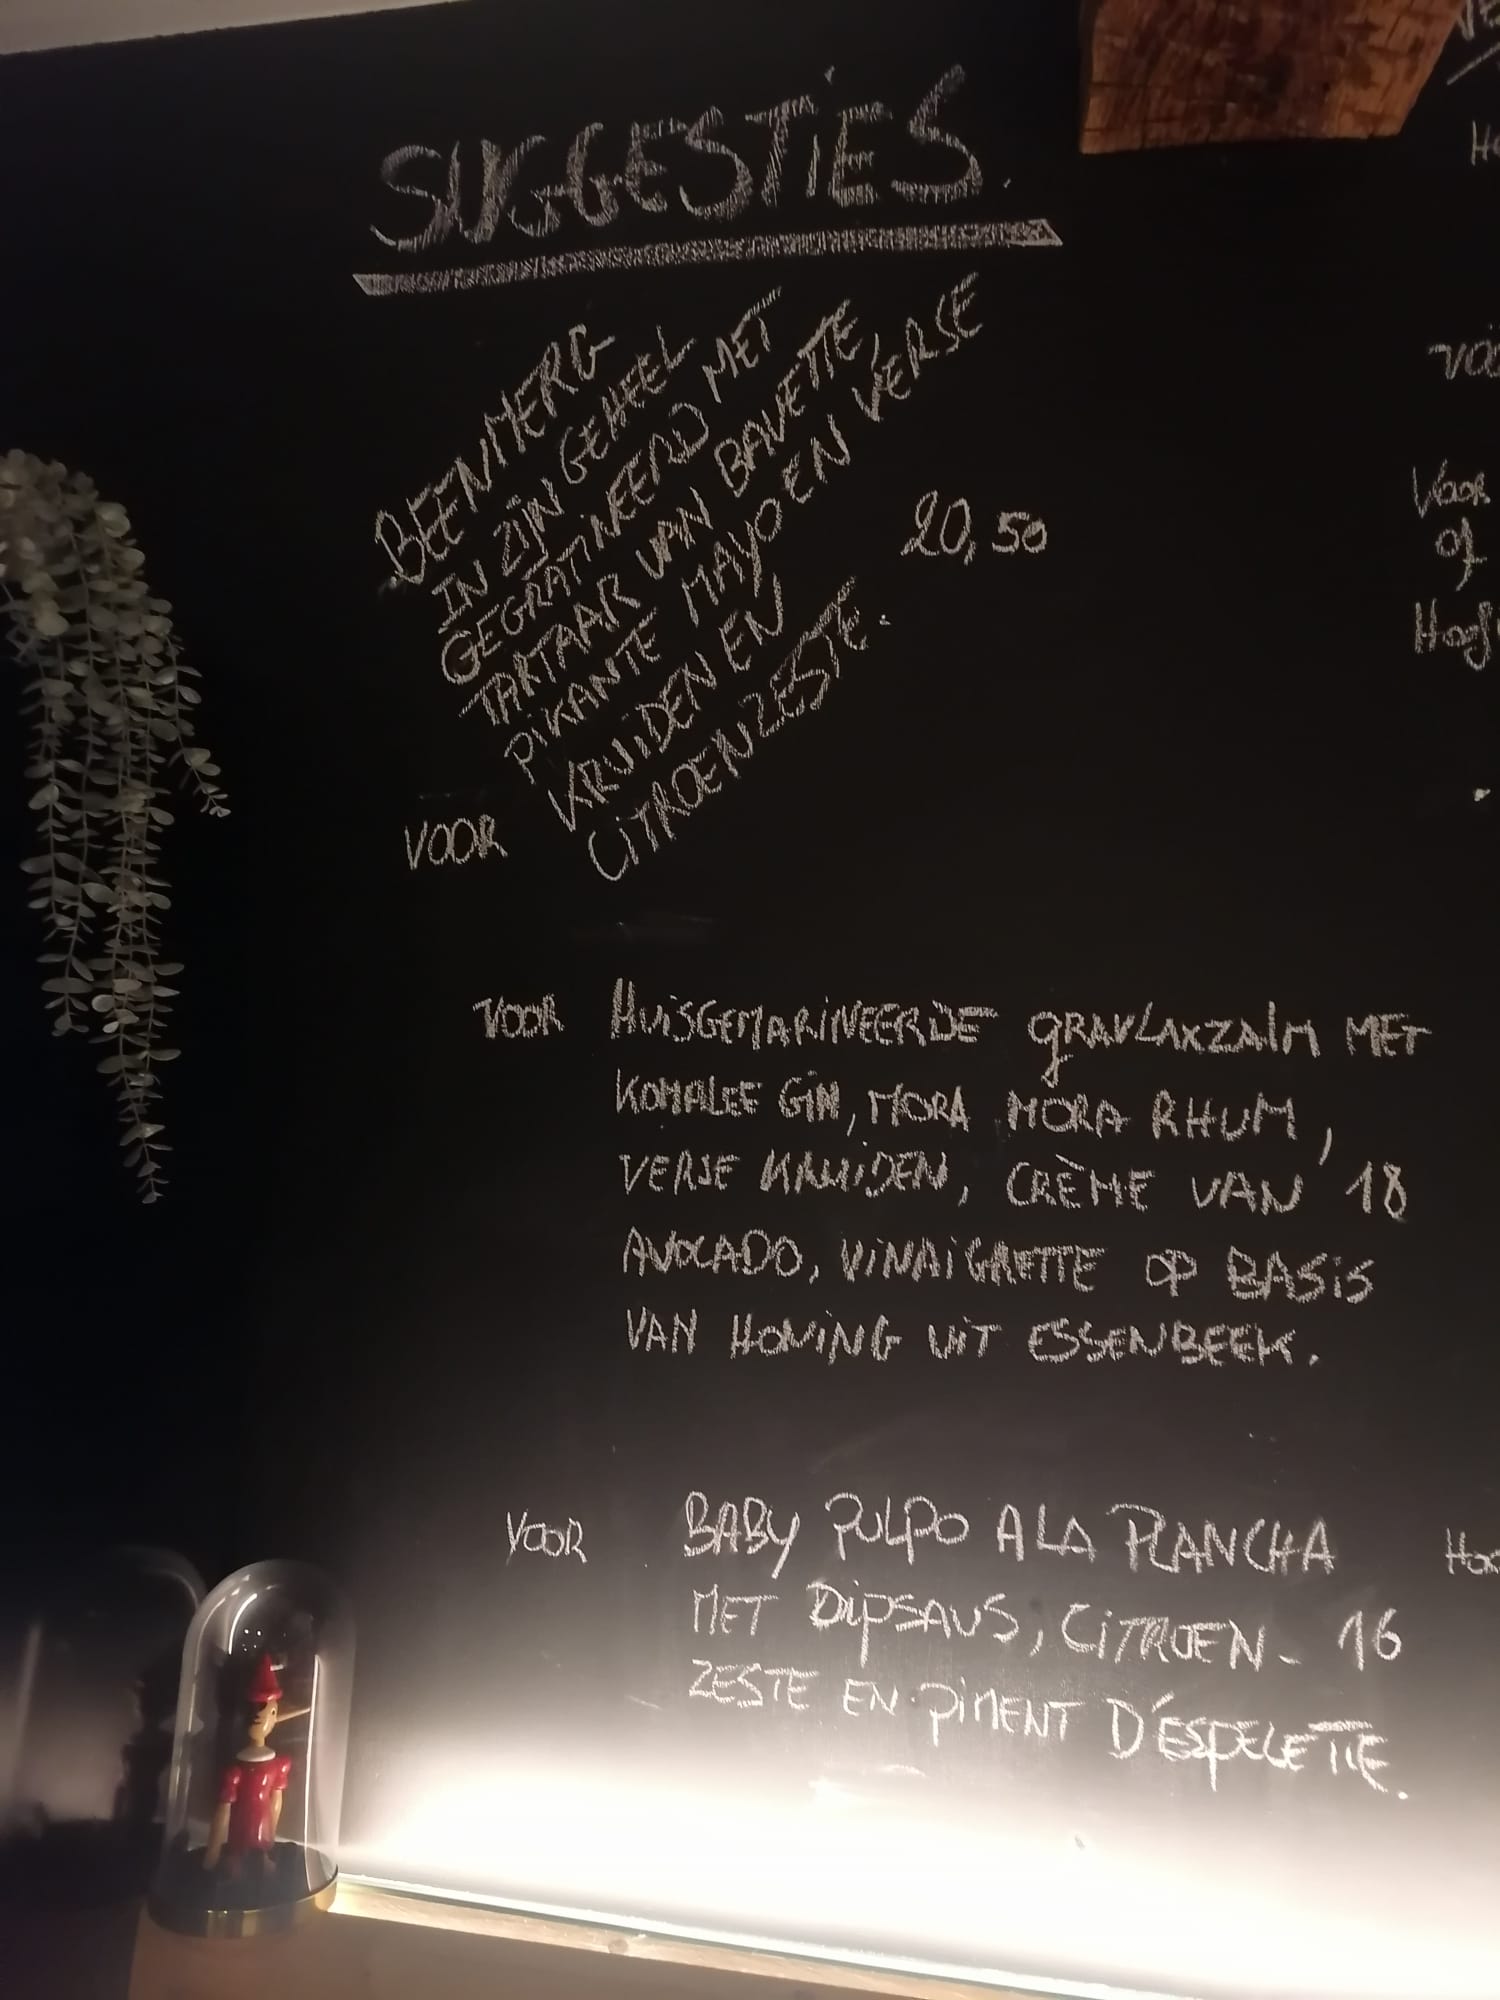 SUGGESTIES.
BEENMERG
IN ZIJN GEHEEL
GEGRATINEERD MET
TARTAAR VAN BAVETTE
PIKANTE MAYO EN VERSE
KRUIDEN EN
CITROENZESTE.
20,50
VOOR
VOOR HUISGEMARINEERDE GRAVLAXZALM MET
GIN, MORA MORA RHUM,
VERSE KRUIDEN, CRÈME VAN 18
AVOCADO, VINAIGRETTE OP BASIS
VAN HONING UIT ESSENBEEK.
VOOR BABY PULPO A LA PLANCHA
MET DIPSAUS, CITROEN- 16
ZESTE EN PIMENT D'ESPELETTE.
Voor
of